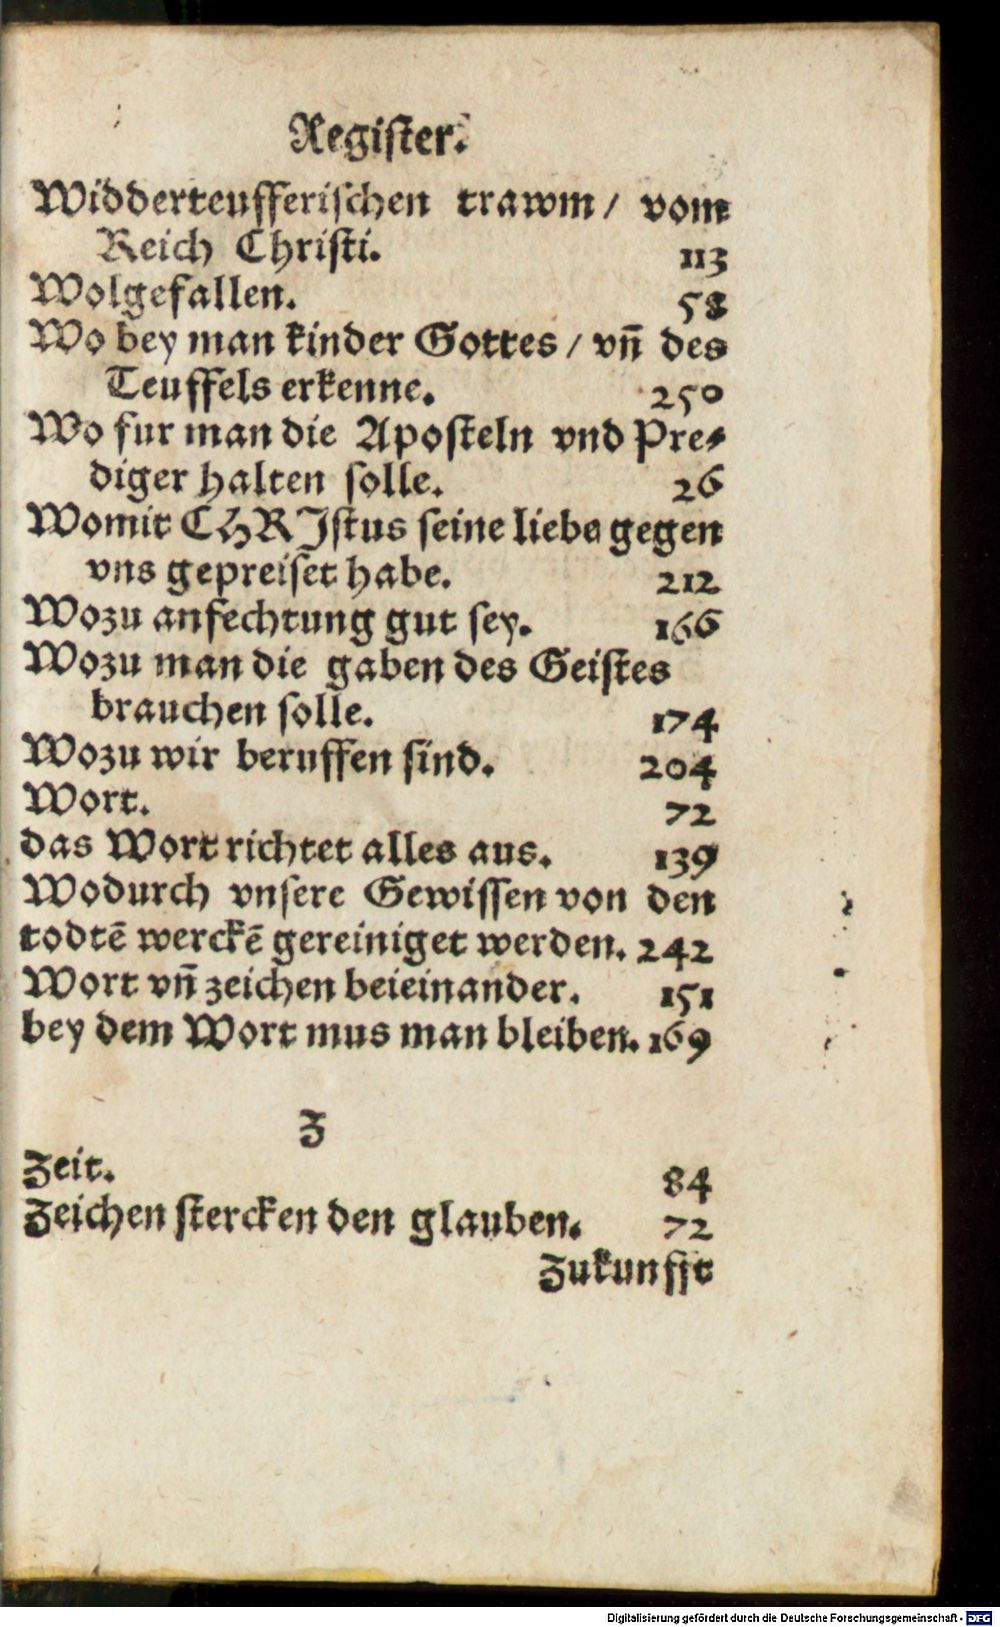 Register.
Widderteufferischen trawm / vom
Reich Christi. 113
Wolgefallen. 58
Wo bey man kinder Gottes / vn̄ des
Teuffels erkenne. 250
Wo fur man die Aposteln vnd Pre⸗
diger halten solle. 26
Womit CHRJstus seine liebe gegen
vns gepreiset habe. 212
Wozu anfechtung gut sey. 166
Wozu man die gaben des Geistes
brauchen solle. 174
Wozu wir beruffen sind. 204
Wort. 72
das Wort richtet alles aus. 139
Wodurch vnsere Gewissen von den
todtē werckē gereiniget werden. 242
Wort vn̄ zeichen beieinander. 151
bey dem Wort mus man bleiben. 169
Z
Zeit. 84
Zeichen stercken den glauben. 72
Zukunfft
Digitalisierung gefördert durch die Deutsche Forschungsgemeinschaft - DFG